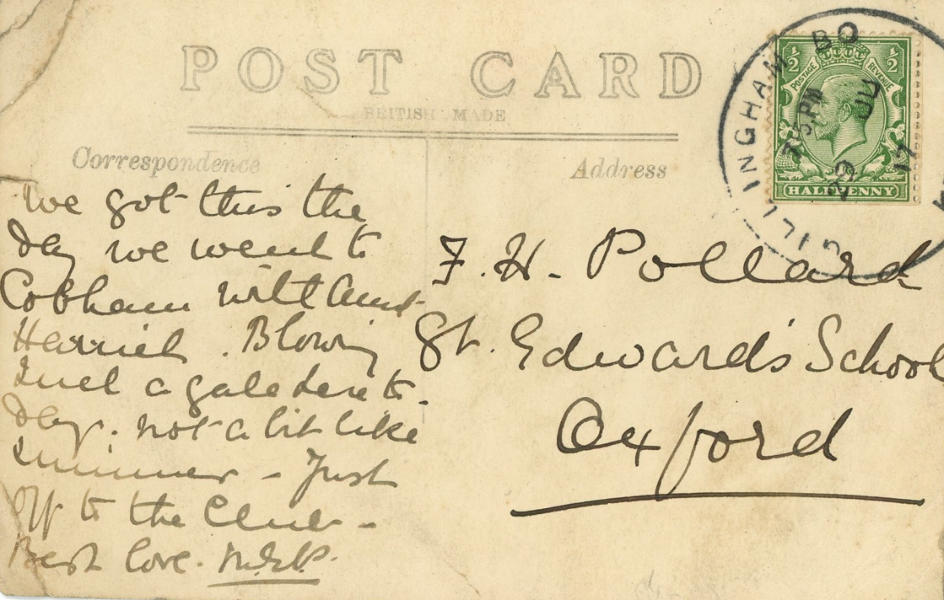 POST CARD
BRITISH MADE
Correspondence
Address
We got this the
day we went to
Cobham with Aunt
Harriet. Blowing
such a gale here to-
day. not a bit like
summer - Just
off to the Club -
Best love. M.E.P.
F. H. Pollard
St. Edward's School
Oxford
GILLINGHAM BO
½ ½
POSTAGE REVENUE
PM
29 JU
17
HALFPENNY